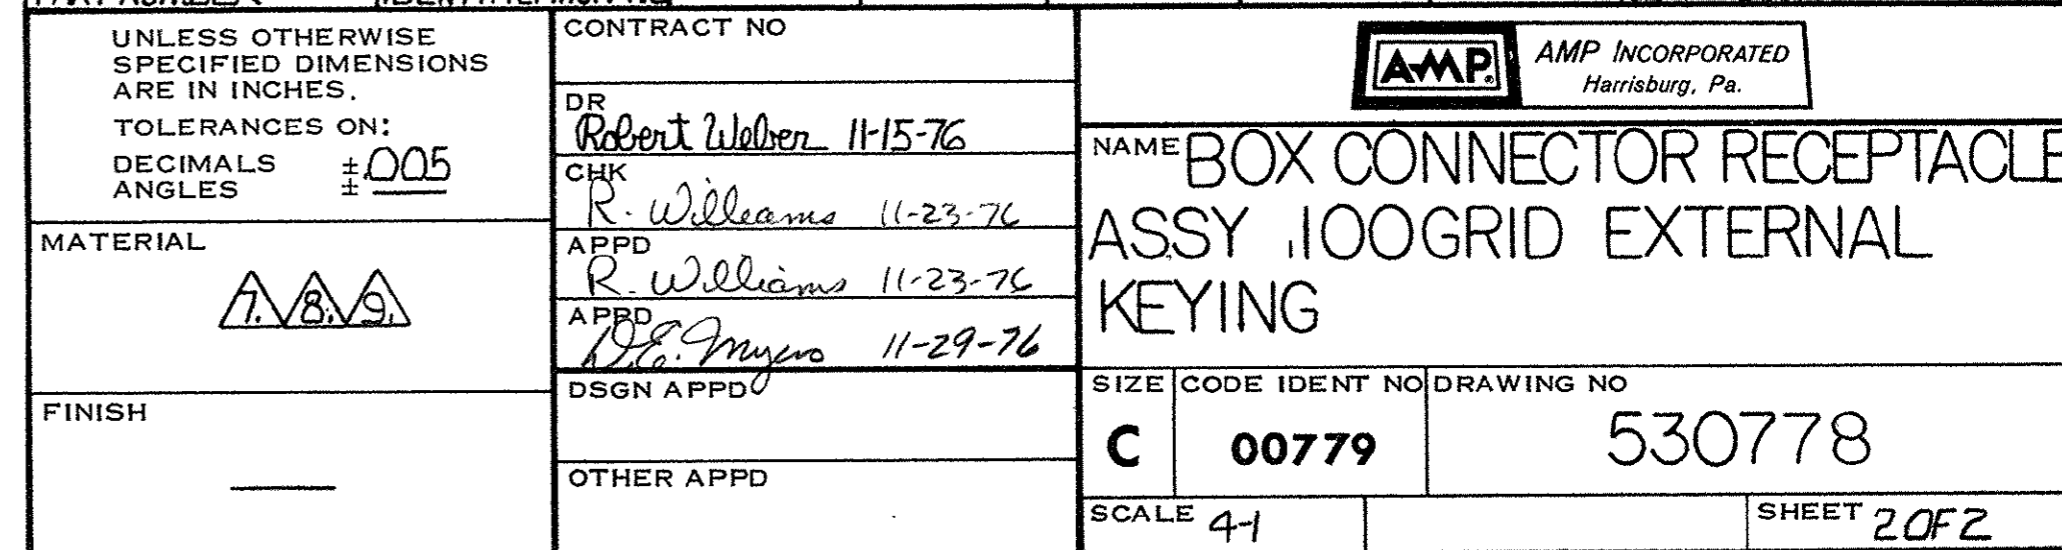 UNLESS OTHERWISE
SPECIFIED DIMENSIONS
ARE IN INCHES.
TOLERANCES ON:
DECIMALS ±.005
ANGLES ± ___
MATERIAL
7. 8. 9.
FINISH
___
CONTRACT NO
DR
Robert Weber 11-15-76
CHK
R. Williams 11-23-76
APPD
R. Williams 11-23-76
APPD
D.E. Myers 11-29-76
DSGN APPD
OTHER APPD
AMP
AMP INCORPORATED
Harrisburg, Pa.
NAME BOX CONNECTOR RECEPTACLE
ASSY .100GRID EXTERNAL
KEYING
SIZE CODE IDENT NO DRAWING NO
C 00779 530778
SCALE 4-1 SHEET 2 OF 2